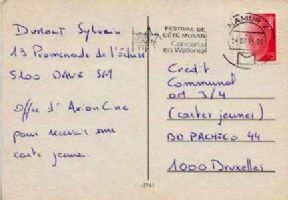 Dumont Sylvain
13 Promenade de l'écluse
5100 DAVE S/M
Offre d'Action Ciné
pour recevoir une
carte jeune.
NAMUR
FESTIVAL DE
L'ÉTÉ MOSAN
Concerts
en Wallonie
Crédit
Communal
art 3/4
(cartes jeunes)
BD PACHECO 44
1000 Bruxelles